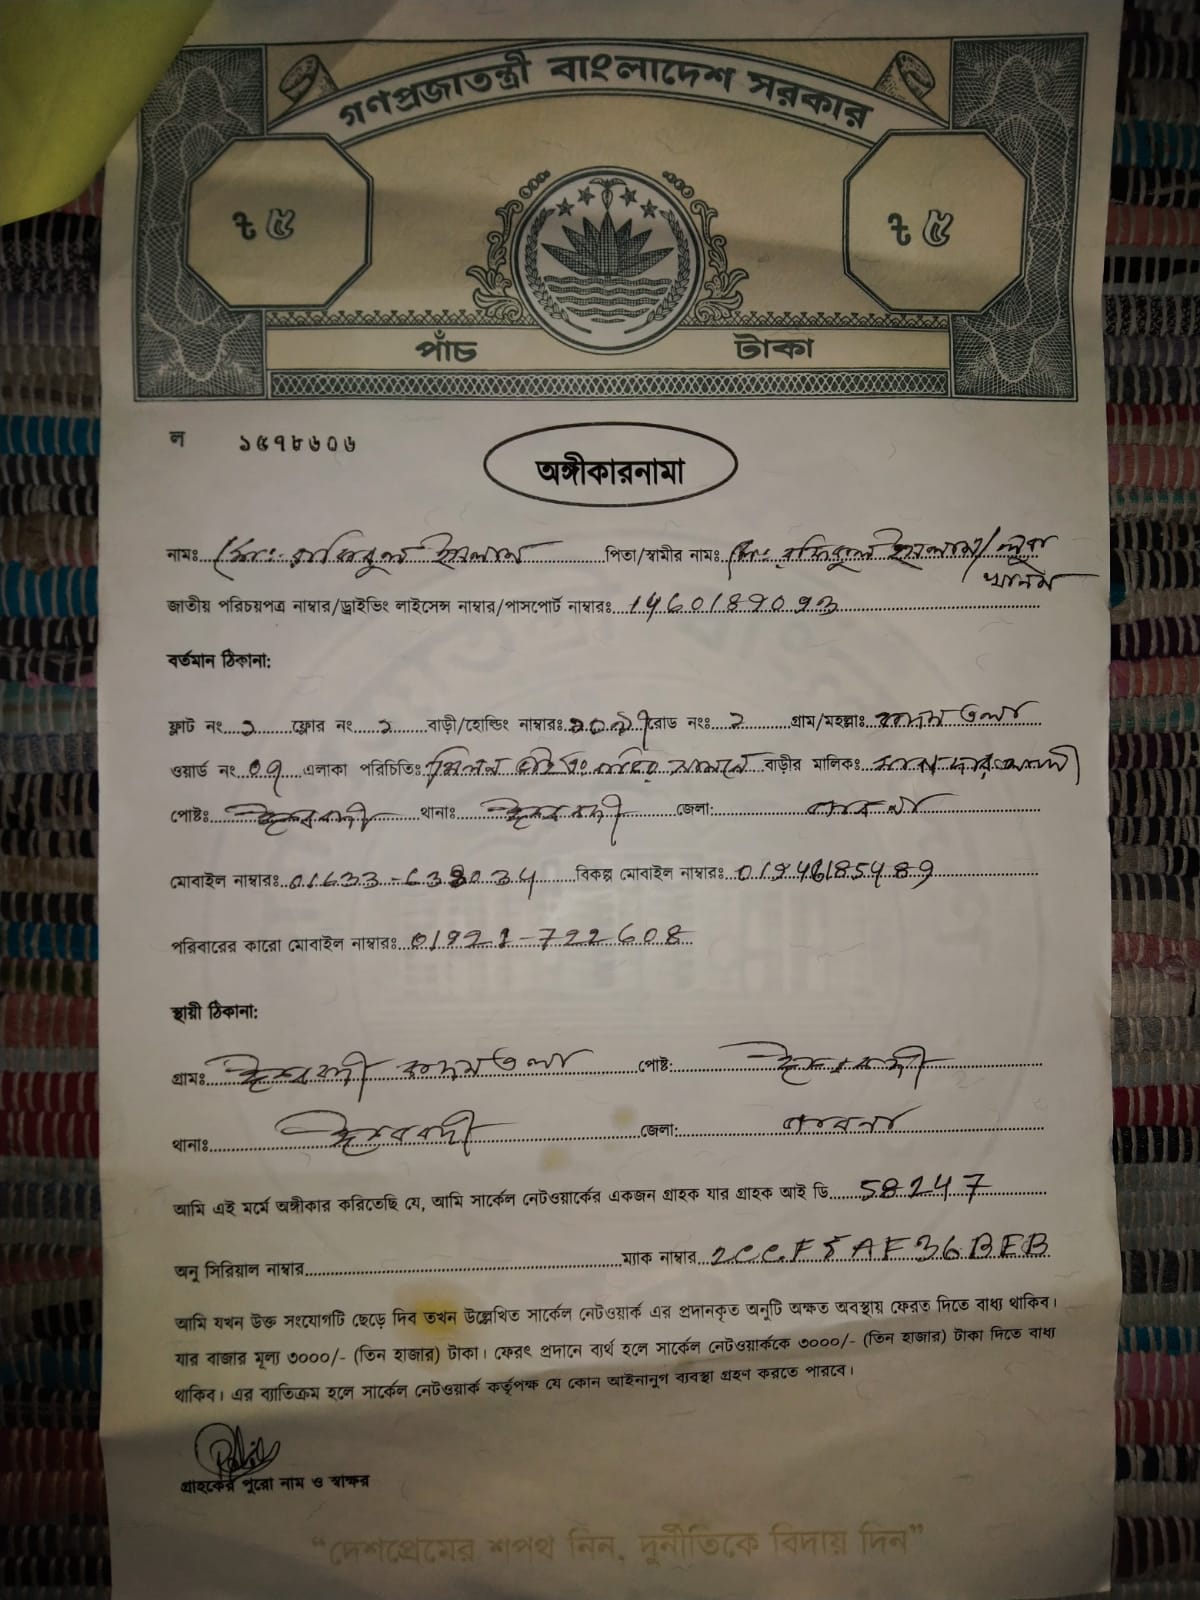 গণপ্রজাতন্ত্রী বাংলাদেশ সরকার
৳ ৫ ৳ ৫
পাঁচ টাকা
ল ১৫৭৮৬০৬
অঙ্গীকারনামা
নামঃ মোঃ রাকিবুল ইসলাম পিতা/স্বামীর নামঃ মোঃ রফিকুল ইসলাম/
খানম
জাতীয় পরিচয়পত্র নাম্বার/ড্রাইভিং লাইসেন্স নাম্বার/পাসপোর্ট নাম্বারঃ
বর্তমান ঠিকানা:
ফ্লাট নং ফ্লোর নং ২ বাড়ী/হোল্ডিং নাম্বারঃ রোড নংঃ ২ গ্রাম/মহল্লাঃ কদমতলা
ওয়ার্ড নং 09 এলাকা পরিচিতিঃ বাড়ীর মালিকঃ
পোষ্টঃ ঈশ্বরদী থানাঃ ঈশ্বরদী জেলা: পাবনা
মোবাইল নাম্বারঃ বিকল্প মোবাইল নাম্বারঃ
পরিবারের কারো মোবাইল নাম্বারঃ 01921-722608
স্থায়ী ঠিকানা:
গ্রামঃ ঈশ্বরদী কদমতলা পোষ্ট: ঈশ্বরদী
থানাঃ ঈশ্বরদী জেলা: পাবনা
আমি এই মর্মে অঙ্গীকার করিতেছি যে, আমি সার্কেল নেটওয়ার্কের একজন গ্রাহক যার গ্রাহক আই ডি 58247
অনু সিরিয়াল নাম্বার ম্যাক নাম্বার 2CCF5AF36BFB
আমি যখন উক্ত সংযোগটি ছেড়ে দিব তখন উল্লেখিত সার্কেল নেটওয়ার্ক এর প্রদানকৃত অনুটি অক্ষত অবস্থায় ফেরত দিতে বাধ্য থাকিব।
যার বাজার মূল্য ৩০০০/- (তিন হাজার) টাকা। ফেরৎ প্রদানে ব্যর্থ হলে সার্কেল নেটওয়ার্ককে ৩০০০/- (তিন হাজার) টাকা দিতে বাধ্য
থাকিব। এর ব্যাতিক্রম হলে সার্কেল নেটওয়ার্ক কর্তৃপক্ষ যে কোন আইনানুগ ব্যবস্থা গ্রহণ করতে পারবে।
গ্রাহকের পুরো নাম ও স্বাক্ষর
“দেশপ্রেমের শপথ নিন, দুর্নীতিকে বিদায় দিন”